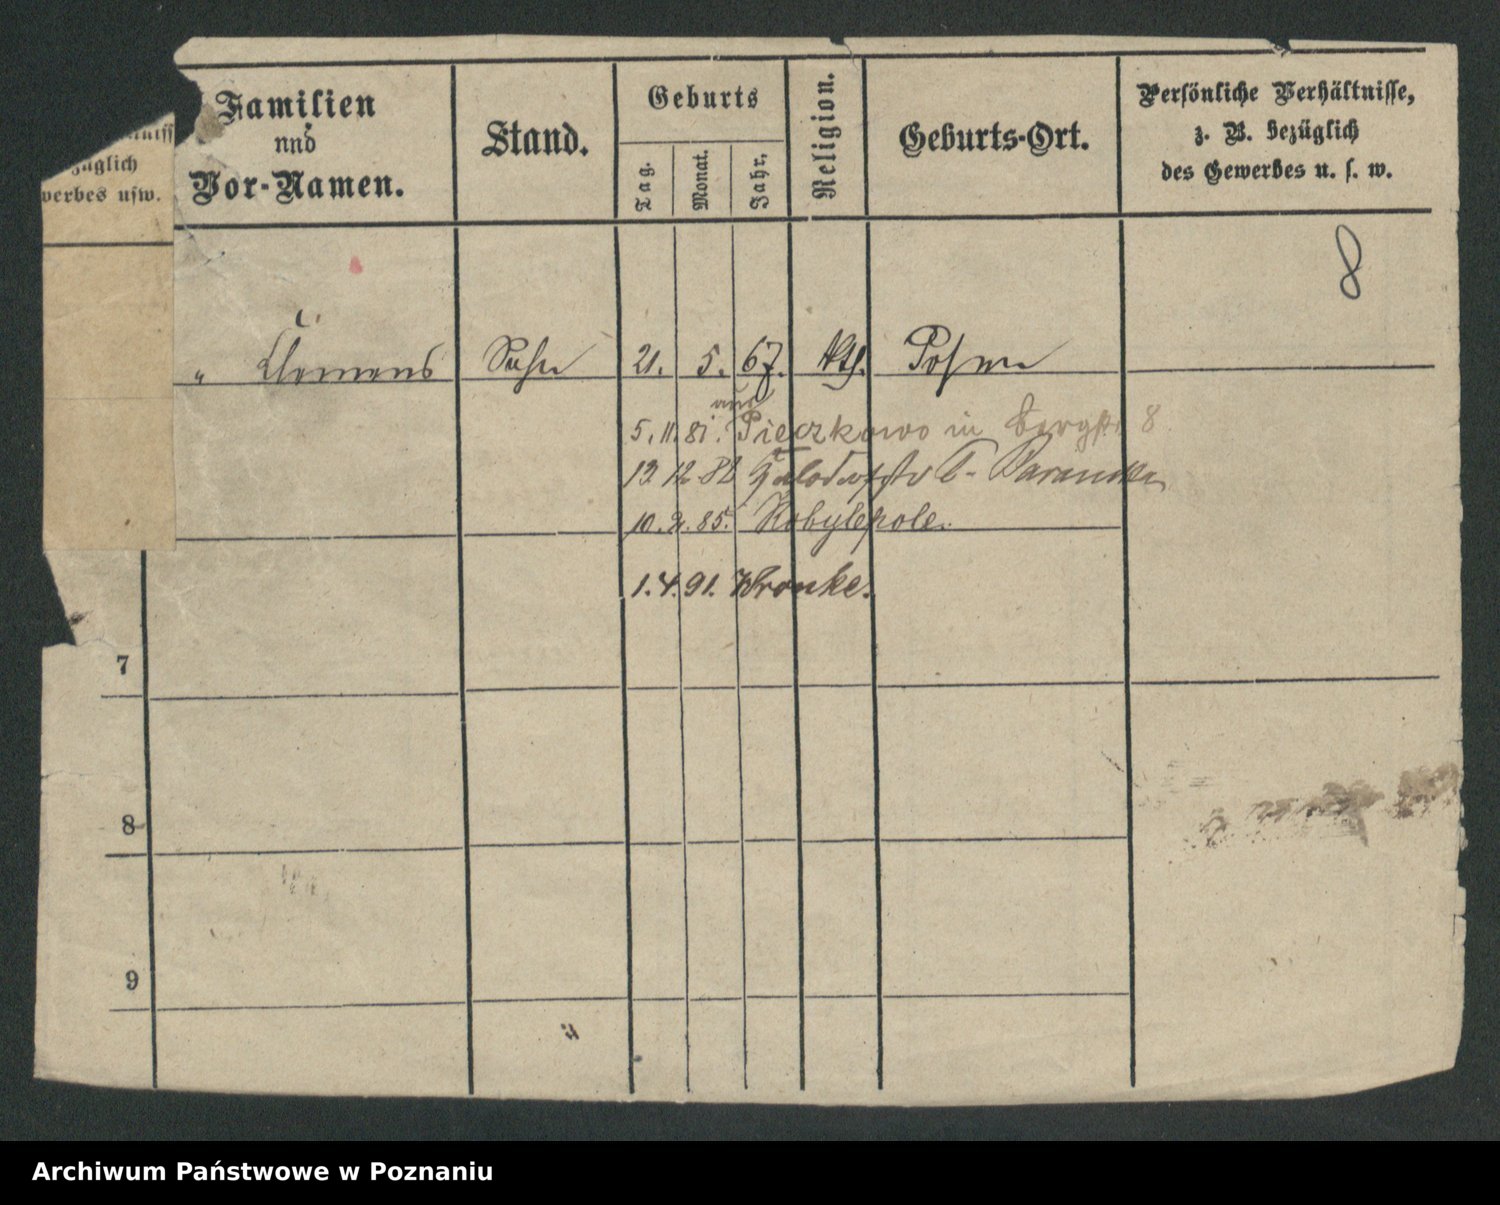 Familien
und
Vor-Namen.
Stand.
Geburts
Tag.
Monat.
Jahr.
Religion.
Geburts-Ort.
Persönliche Verhältnisse,
z. B. bezüglich
des Gewerbes u. s. w.
züglich
werbes usw.
8
" Clemens Sohn 21. 5. 67. kth. Posen
aus
5. 11. 81. Pieczkowo in Bergstr 8
13 12 82
10. 2. 85. Kobylepole.
1. 4. 91. Wronke.
7
8
9
Archiwum Państwowe w Poznaniu